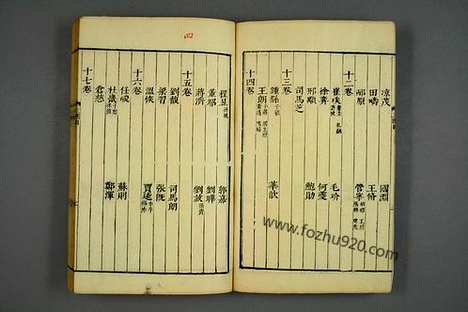 涼茂 國淵
田疇 王脩
邴原 管寧
十二卷
崔琰 毛玠
徐弈 何夔
邢顒 鮑勛
司馬芝
十三卷
鍾繇子毓
王朗 華歆
十四卷
程昱孫曉 郭嘉
董昭 劉曄
蔣濟 劉放孫資
十五卷
劉馥 司馬朗
梁習 張既
溫恢 賈逵
十六卷
任峻 蘇則
杜畿子恕 鄭渾
倉慈
十七卷
www.fozhu920.com